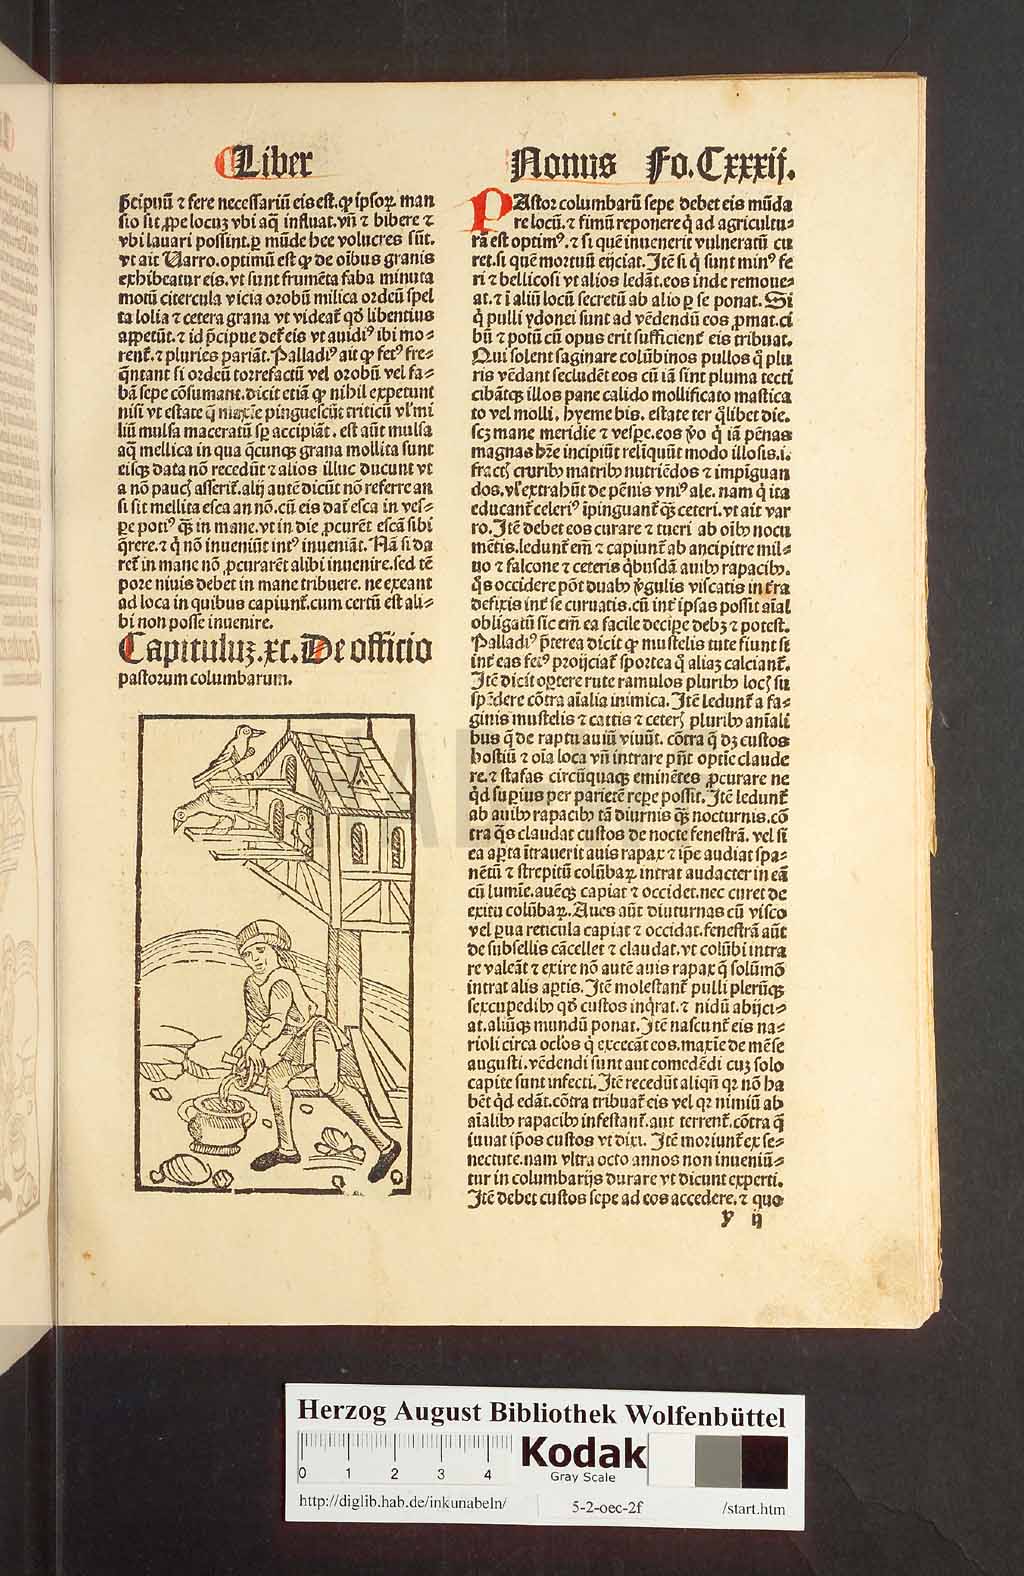 Liber Nonus Fo.Cxxxij.
p̄cipuū ⁊ fere neceſſariū eis eſt. ꝙ ipſoꝝ man
ſio ſit ꝓpe locuꝫ vbi aq̄ influat. vn̄ ⁊ bibere ⁊
vbi lauari poſſint. ꝑ mūde hee volucres ſūt.
vt ait Uarro. optimū eſt ꝙ de oībus granis
exhibeatur eis. vt ſunt frumēta faba minuta
motū citercula vicia orobū milica ordeū ſpel
ta lolia ⁊ cetera grana vt videat᷑ qd̄ libentius
appetūt. ⁊ id p̄cipue det᷑ eis vt auidiꝰ ibi mo⸗
rent᷑. ⁊ pluries pariāt. Palladiꝰ ait ꝙ fetꝰ fre⸗
q̄ntant ſi ordeū torrefactū vel orobū vel fa⸗
bā ſepe cōſumant. dicit etiā ꝙ nihil expetunt
niſi vt eſtate q̄ maxīe pingueſcūt triticū vl᷑ mi
liū mulſa maceratū ſꝑ accipiāt. eſt aūt mulſa
aq̄ mellica in qua q̄cunqꝫ grana mollita ſunt
eiſqꝫ data nō recedūt ⁊ alios illuc ducunt vt
a nō paucꝭ aſſerit᷑. alij autē dicūt nō referre an
ſi ſit mellita eſca an nō. cū eis dat᷑ eſca in veſ⸗
ꝑe potiꝰ qꝫ̄ in mane. vt in die ꝓcurēt eſcā ſibi
q̄rere. ⁊ q̇ nō inueniūt intꝰ inueniāt. Nā ſi da
ret᷑ in mane nō ꝓcurarēt alibi inuenire. ſed tē
pore niuis debet in mane tribuere. ne exeant
ad loca in quibus capiunt᷑. cum certū eſt ali⸗
bi non poſſe inuenire.
Capituluꝫ .xc. De officio
paſtorum columbarum.
PAſtor columbarū ſepe debet eis mūda
re locū. ⁊ fimū reponere q̇ ad agricultu⸗
rā eſt optimꝰ. ⁊ ſi quē inuenerit vulneratū cu
ret. ſi quē mortuū eijciat. Itē ſi q̇ ſunt minꝰ fe
ri ⁊ bellicoſi vt alios ledāt. eos inde remoue⸗
at. ⁊ ī aliū locū ſecretū ab alio ꝑ ſe ponat. Si
q̇ pulli ydonei ſunt ad vēdendū eos ꝓmat. ci
bū ⁊ potū cū opus erit ſufficient᷑ eis tribuat.
Qui ſolent ſaginare colūbinos pullos q̇ plu
ris vēdant ſecludēt eos cū iā ſint pluma tecti
cibātqꝫ illos pane calido mollificato maſtica
to vel molli. hyeme bis. eſtate ter q̇libet die.
ſcꝫ mane meridie ⁊ veſꝑe. eos v̄o q̇ iā pēnas
magnas hr̄e incipiūt reliquūt modo illoſis. i.
fractꝭ cruribꝰ matribꝰ nutriēdos ⁊ impīguan
dos. vl᷑ extrahūt de pēnis vniꝰ ale. nam q̇ ita
educant᷑ celeriꝰ īpinguant᷑ qꝫ̄ ceteri. vt ait var
ro. Itē debet eos curare ⁊ tueri ab oībꝰ nocu
mētis. ledunt᷑ em̄ ⁊ capiunt᷑ ab ancipitre mil⸗
uo ⁊ falcone ⁊ ceteris q̇buſdā auibꝰ rapacibꝰ.
q̄s occidere pōt duabꝰ v̄gulis viſcatis in tr̄a
defixis int᷑ ſe curuatis. cū int᷑ ipſas poſſit aīal
obligatū ſic em̄ ea facile decipe debꝫ ⁊ poteſt.
Palladiꝰ p̄terea dicit ꝙ muſtelis tute fiunt ſi
int᷑ eas fetꝰ proijciat᷑ ſportea q̄ aliaꝫ calciant᷑.
Itē dicit oꝑtere rute ramulos pluribꝰ locꝭ ſu
ſpēdere cōtra aīalia inimica. Itē ledunt᷑ a fa⸗
ginis muſtelis ⁊ cattis ⁊ ceterꝭ pluribꝰ anīali
bus q̄ de raptu auiū viuūt. cōtra q̄ dꝫ cuſtos
hoſtiū ⁊ oīa loca vn̄ intrare pn̄t optīe claude
re. ⁊ ſtafas circūquaqꝫ eminētes ꝓcurare ne
q̇d ſuꝑius per parietē reꝑe poſſit. Itē ledunt᷑
ab auibꝰ rapacibꝰ tā diurnis qꝫ̄ nocturnis. cō
tra q̄s claudat cuſtos de nocte feneſtrā. vel ſi
ea aꝑta ītrauerit auis rapax ⁊ ip̄e audiat ſpa⸗
nētū ⁊ ſtrepitū colūbaꝝ intrat audacter in eā
cū lumīe. auēqꝫ capiat ⁊ occidet. nec curet de
exitu colūbaꝝ. Aues aūt diuturnas cū viſco
vel ꝑua reticula capiat ⁊ occidat. feneſtrā aūt
de ſubſellis cācellet ⁊ claudat. vt colūbi intra
re valeāt ⁊ exire nō autē auis rapax q̄ ſolūmō
intrat alis aꝑtis. Itē moleſtant᷑ pulli plerūqꝫ
ſexcupedibꝰ qd̄ cuſtos inq̇rat. ⁊ nidū abijci⸗
at. aliūqꝫ mundū ponat. Itē naſcunt᷑ eis na⸗
rioli circa ocl̓os q̇ excecāt eos. maxīe de mēſe
auguſti. vēdendi ſunt aut comedēdi cuꝫ ſolo
capite ſunt infecti. Itē recedūt aliqn̄ qꝛ nō ha
bēt q̇d edāt. cōtra tribuat᷑ eis vel qꝛ nimiū ab
aīalibꝰ rapacibꝰ infeſtant᷑. aut terrent᷑. cōtra q̄
iuuat ip̄os cuſtos vt dixi. Itē moriunt᷑ ex ſe⸗
nectute. nam vltra octo annos non inueniū⸗
tur in columbarijs durare vt dicunt experti.
Itē debet cuſtos ſepe ad eos accedere. ⁊ quo
y ij
Herzog August Bibliothek Wolfenbüttel
0 1 2 3 4
Kodak
Gray Scale
http://diglib.hab.de/inkunabeln/ 5-2-oec-2f /start.htm